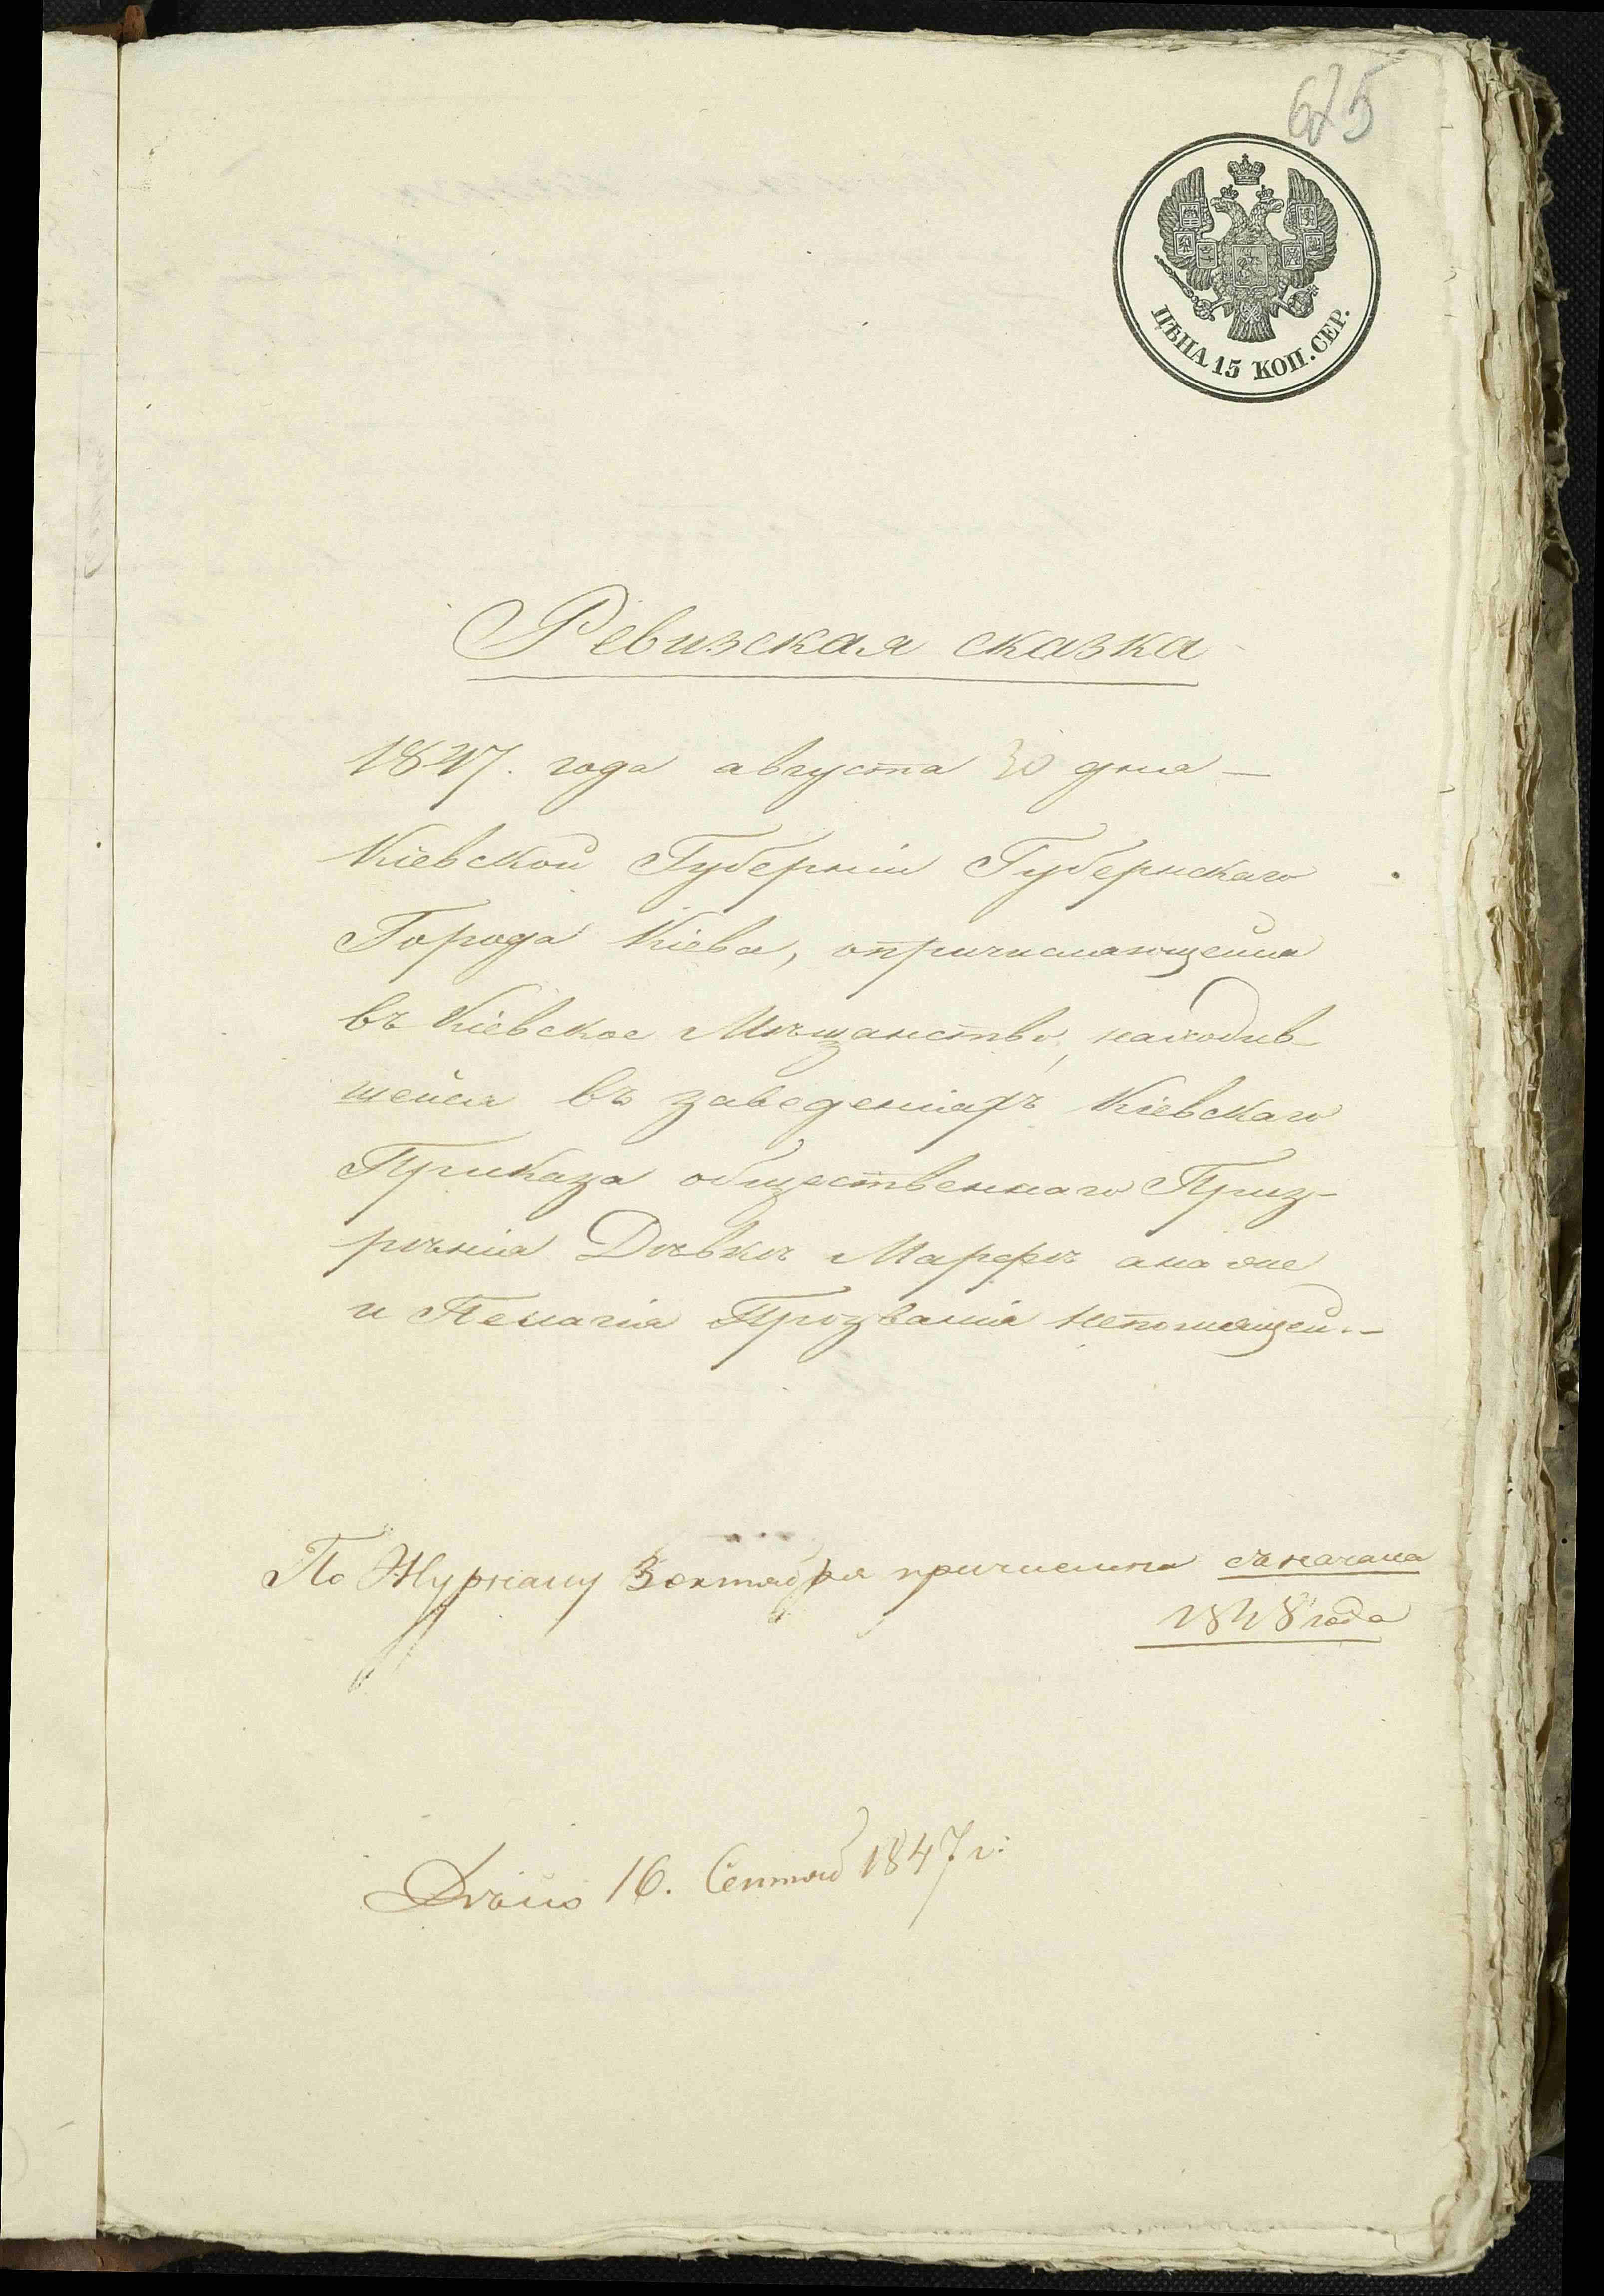 625
ЦѢНА 15 КОП. СЕР.
Ревизская сказка
1847. года августа 30 дня —
Кіевской Губерніи Губернскаго
Города Кіева, опричисляющейся
въ Кіевское Мѣщанство, находив-
шейся въ заведеніяхъ Кіевскаго
Приказа общественнаго Приз-
рѣнія Дѣвкѣ Марфѣ она же
и Пелагія Прозванія непомнящей. —
По Журналу 3 октября причислена съ начала
1848 года
16. Сентяб 1847 г: